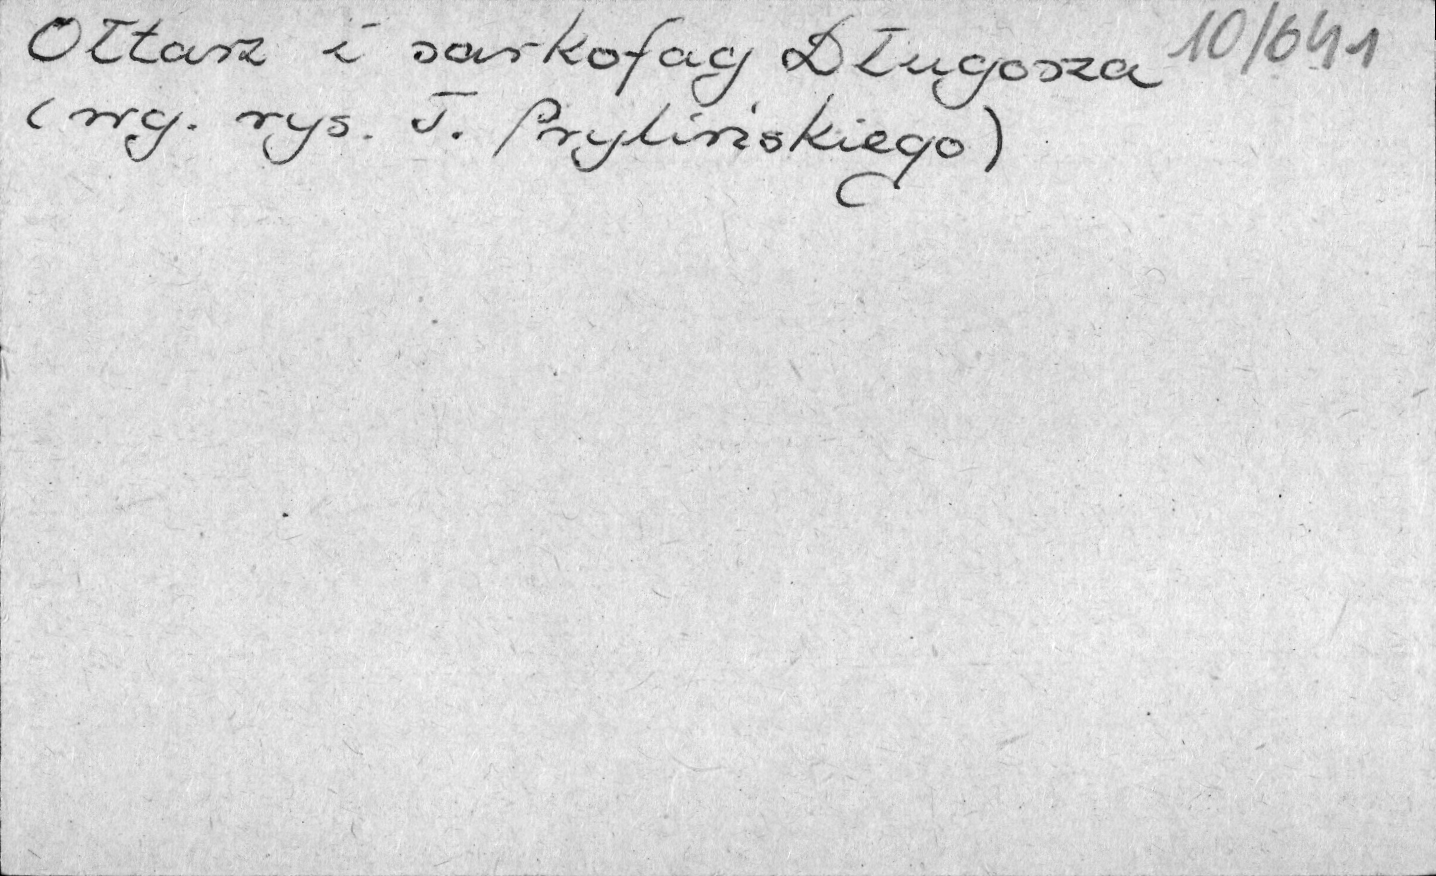 Ołtarz i sarkofag Długosza 10/641
(wg. rys. T. Prylińskiego)